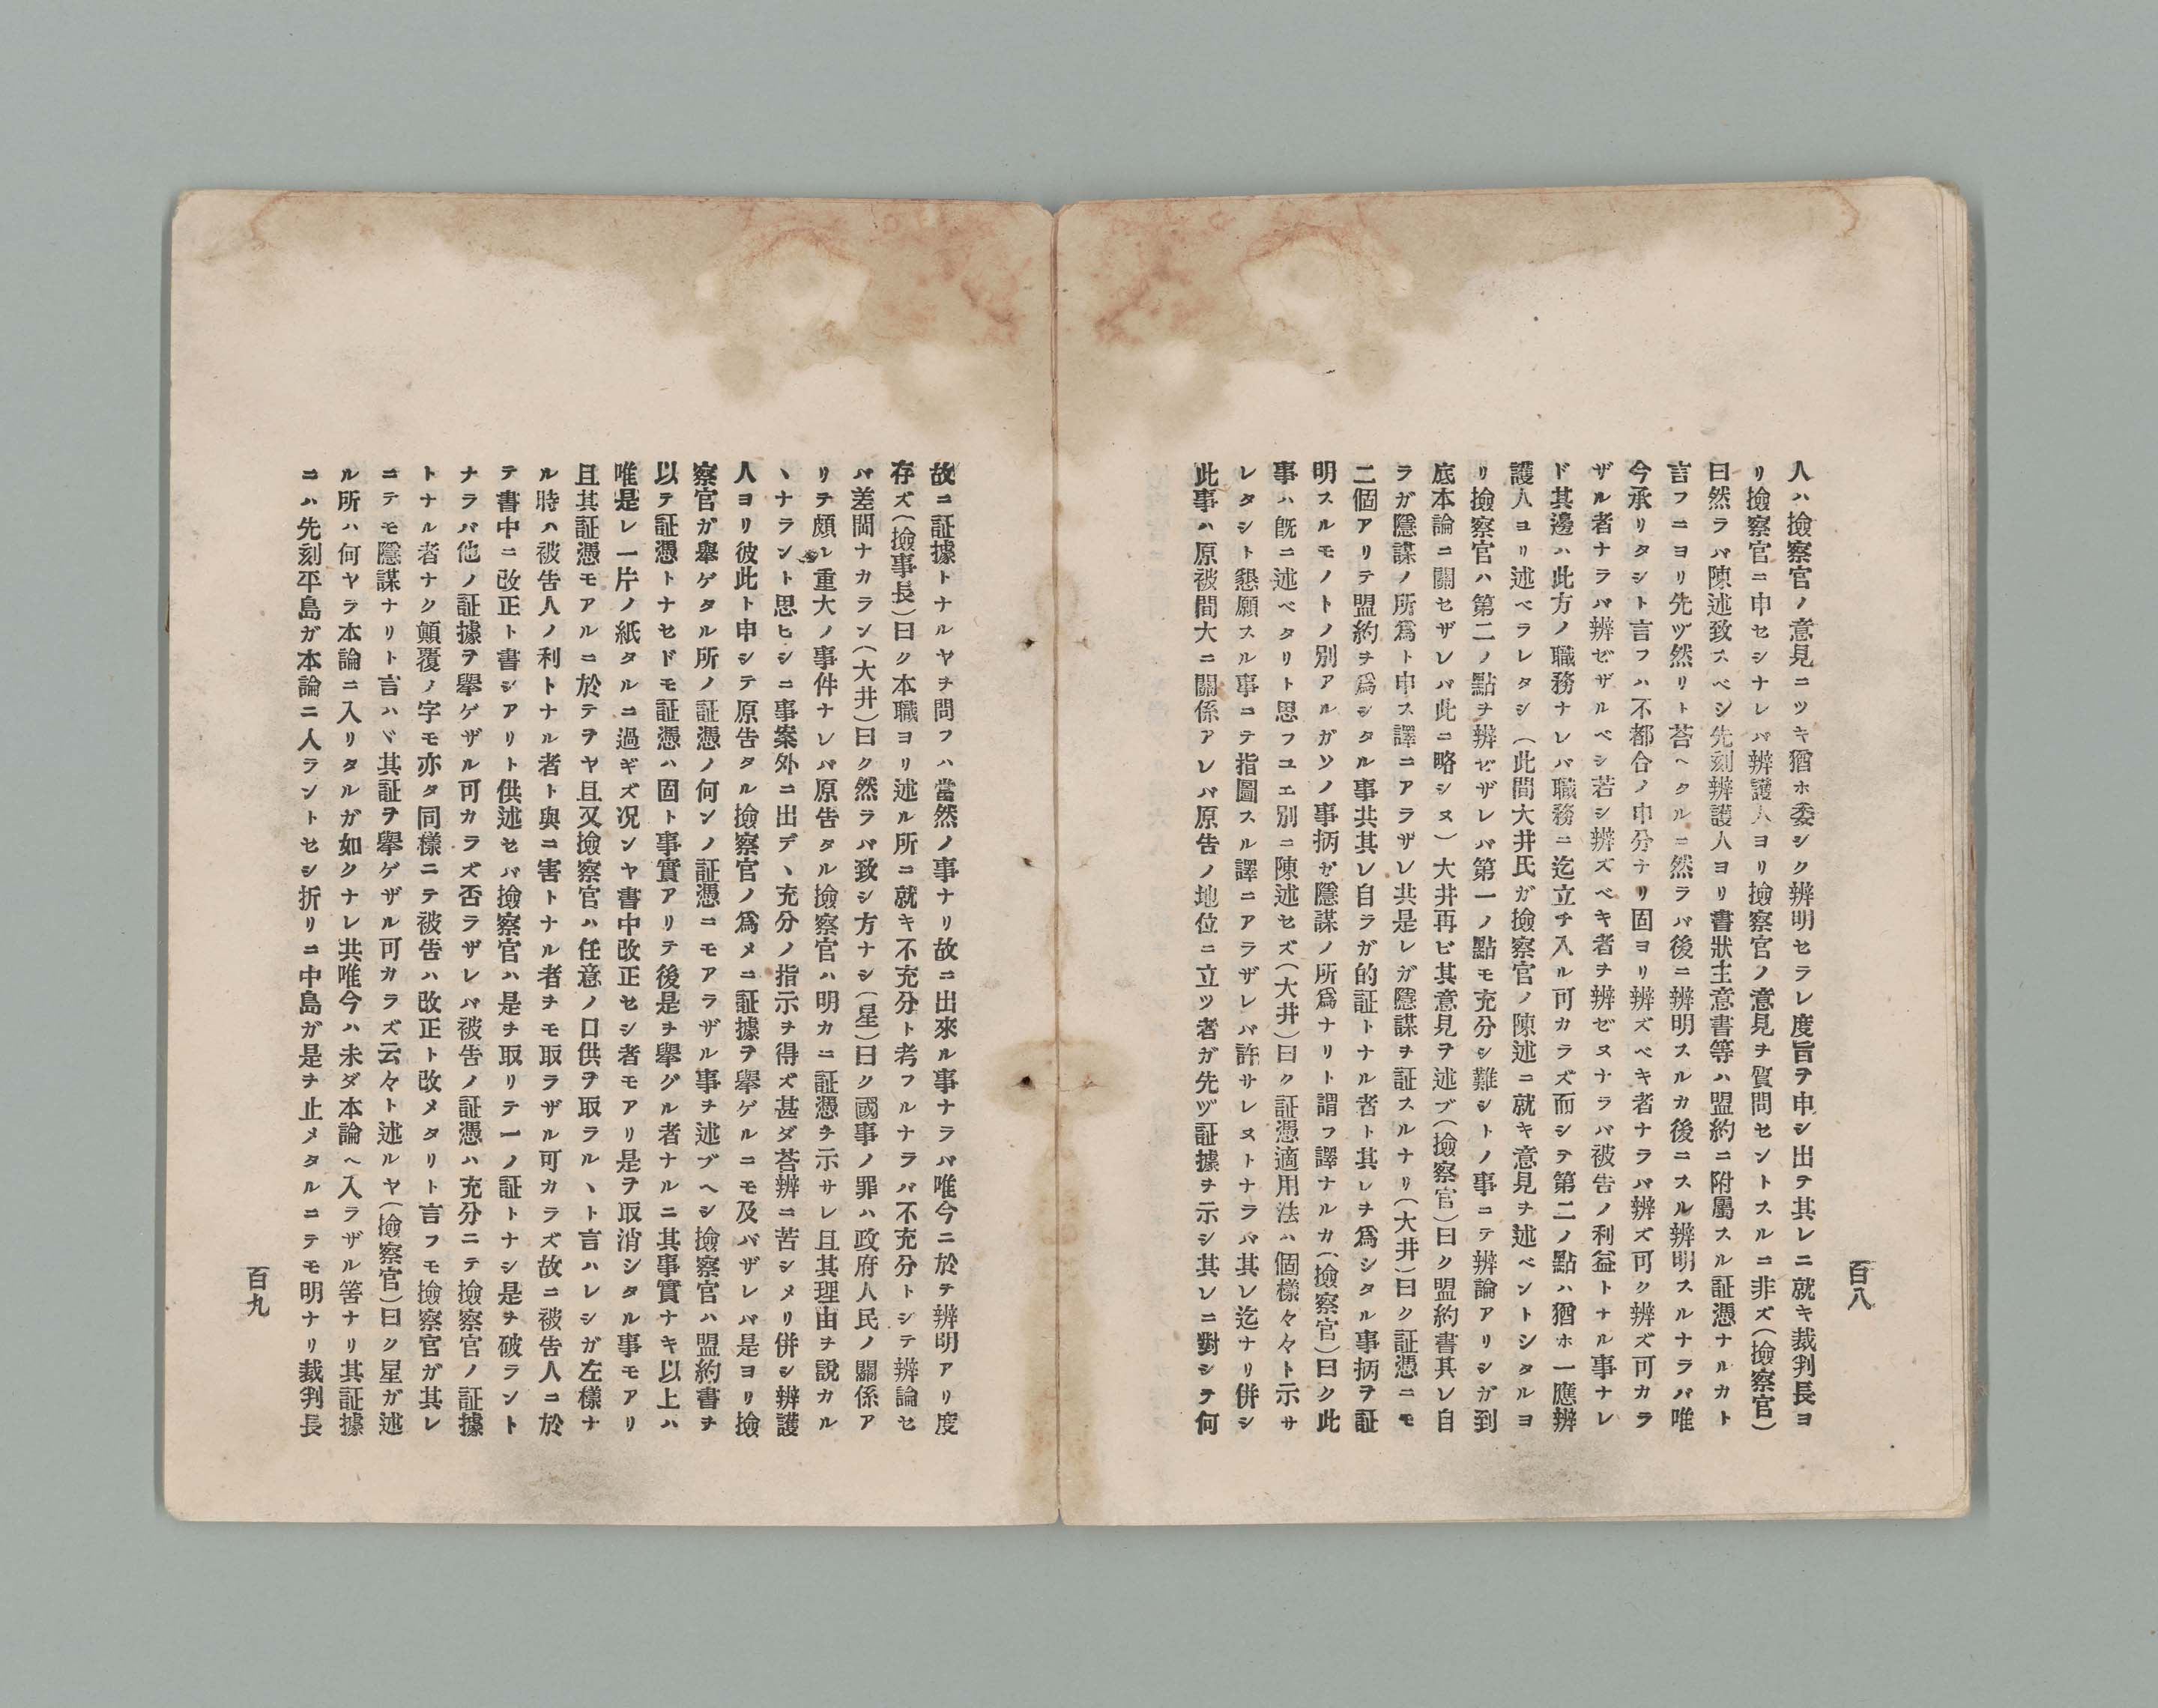 百八
人ハ撿察官ノ意見ニツキ猶ホ委シク辨明セラレ度旨ヲ申シ出テ其レニ就キ裁判長ヨ
リ撿察官ニ申セシナレバ辨護人ヨリ撿察官ノ意見ヲ質問セントスルニ非ズ(撿察官)
曰然ラバ陳述致スベシ先刻辨護人ヨリ書狀主意書等ハ盟約ニ附屬スル証憑ナルカト
言フニヨリ先ヅ然リト荅ヘタルニ然ラバ後ニ辨明スルカ後ニスル辨明スルナラバ唯
今承リタシト言フハ不都合ノ申分ナリ固ヨリ辨ズベキ者ナラバ辨ズ可ク辨ズ可カラ
ザル者ナラバ辨ゼザルベシ若シ辨ズベキ者ヲ辨ゼヌナラバ被告ノ利益トナル事ナレ
ド其邊ハ此方ノ職務ナレバ職務ニ迄立チ入ル可カラズ而シテ第二ノ點ハ猶ホ一應辨
護人ヨリ述ベラレタシ(此間大井氏ガ撿察官ノ陳述ニ就キ意見ヲ述ベントシタルヨ
リ撿察官ハ第二ノ點ヲ辨ゼザレバ第一ノ點モ充分シ難シトノ事ニテ辨論アリシガ到
底本論ニ關セザレバ此ニ略シヌ)大井再ビ其意見ヲ述ブ(撿察官)曰ク盟約書其レ自
ラガ隱謀ノ所爲ト申ス譯ニアラザレ共是レガ隱謀ヲ証スルナリ(大井)曰ク証憑ニモ
二個アリテ盟約ヲ爲シタル事共其レ自ラガ的証トナル者ト其レヲ爲シタル事柄ヲ証
明スルモノトノ別アルガソノ事柄ガ隱謀ノ所爲ナリト謂フ譯ナルカ(撿察官)曰ク此
事ハ旣ニ述ベタリト思フユエ別ニ陳述セズ(大井)曰ク証憑適用法ハ個樣々々ト示サ
レタシト懇願スル事ニテ指圖スル譯ニアラザレバ許サレヌトナラバ其レ迄ナリ併シ
此事ハ原被間大ニ關係アレバ原告ノ地位ニ立ツ者ガ先ヅ証據ヲ示シ其レニ對シテ何
故ニ証據トナルヤヲ問フハ當然ノ事ナリ故ニ出來ル事ナラバ唯今ニ於テ辨明アリ度
存ズ(撿事長)曰ク本職ヨリ述ル所ニ就キ不充分ト考フルナラバ不充分トシテ辨論セ
バ差閊ナカラン(大井)曰ク然ラバ致シ方ナシ(星)曰ク國事ノ罪ハ政府人民ノ關係ア
リテ頗ル重大ノ事件ナレバ原告タル撿察官ハ明カニ証憑ヲ示サレ且其理由ヲ說カル
ヽナラント思ヒシニ事案外ニ出デヽ充分ノ指示ヲ得ズ甚ダ荅辨ニ苦シメリ併シ辨護
人ヨリ彼此ト申シテ原告タル撿察官ノ爲メニ証據ヲ擧ゲルニモ及バザレバ是ヨリ撿
察官ガ擧ゲタル所ノ証憑ノ何ンノ証憑ニモアラザル事ヲ述ブヘシ撿察官ハ盟約書ヲ
以テ証憑トナセドモ証憑ハ固ト事實アリテ後是ヲ擧グル者ナルニ其事實ナキ以上ハ
唯是レ一片ノ紙タルニ過ギズ况ンヤ書中改正セシ者モアリ是ヲ取消シタル事モアリ
且其証憑モアルニ於テヲヤ且又撿察官ハ任意ノ口供ヲ取ラルヽト言ハレシガ左樣ナ
ル時ハ被告人ノ利トナル者ト與ニ害トナル者ヲモ取ラザル可カラズ故ニ被告人ニ於
テ書中ニ改正ト書シアリト供述セバ撿察官ハ是ヲ取リテ一ノ証トナシ是ヲ破ラント
ナラバ他ノ証據ヲ擧ゲザル可カラズ否ラザレバ被告ノ証憑ハ充分ニテ撿察官ノ証據
トナル者ナク顚覆ノ字モ亦タ同樣ニテ被告ハ改正ト改メタリト言フモ撿察官ガ其レ
ニテモ隱謀ナリト言ハヾ其証ヲ擧ゲザル可カラズ云々ト述ルヤ(撿察官)曰ク星ガ述
ル所ハ何ヤラ本論ニ入リタルガ如クナレ共唯今ハ未ダ本論ヘ入ラザル筈ナリ其証據
ニハ先刻平島ガ本論ニ入ラントセシ折リニ中島ガ是ヲ止メタルニテモ明ナリ裁判長
百九